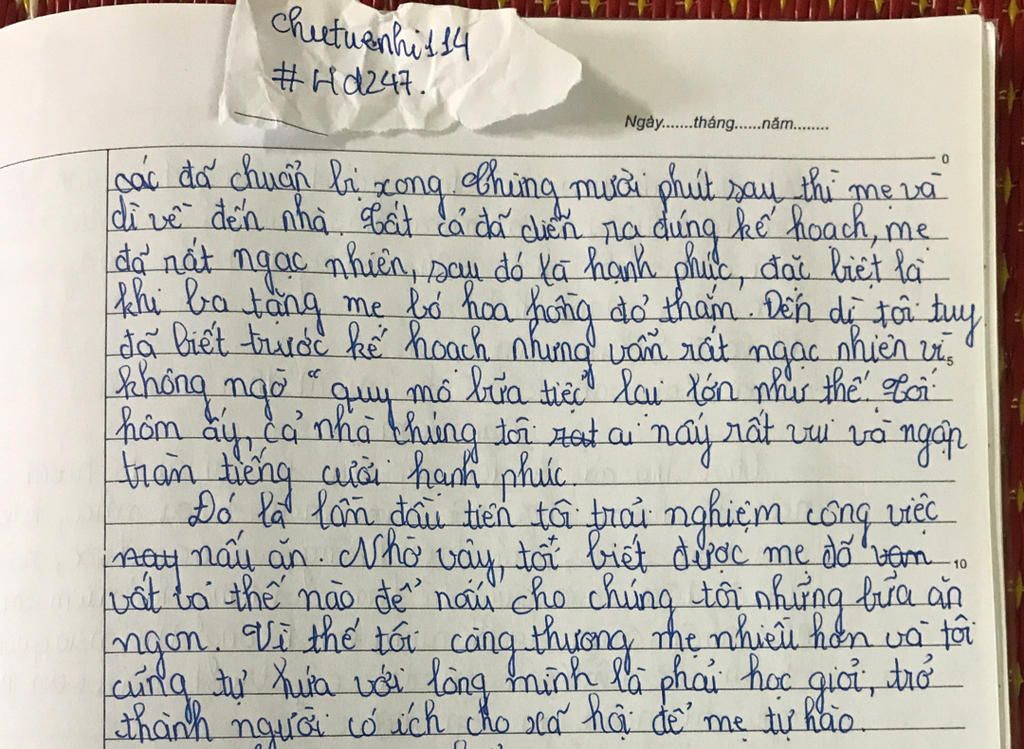 chutuenhi114
#Hd247.
Ngày.......tháng......năm........
0
các đã chuẩn bị xong. Chừng mười phút sau thì mẹ và
dì về đến nhà. Tất cả đã diễn ra đúng kế hoạch, mẹ
đã rất ngạc nhiên, sau đó là hạnh phúc, đặc biệt là
khi ba tặng mẹ bó hoa hồng đỏ thắm. Đến dì tôi tuy
đã biết trước kế hoạch nhưng vẫn rất ngạc nhiên vì
5
không ngờ "quy mô bữa tiệc" lại lớn như thế. Tối
hôm ấy, cả nhà chúng tôi rat ai nấy rất vui và ngập
tràn tiếng cười hạnh phúc.
Đó là lần đầu tiên tôi trải nghiệm công việc
nay nấu ăn. Nhờ vậy, tôi biết được mẹ đã vam
10
vất vả thế nào để nấu cho chúng tôi những bữa ăn
ngon. Vì thế tôi càng thương mẹ nhiều hơn và tôi
cũng tự hứa với lòng mình là phải học giỏi, trở
thành người có ích cho xã hội để mẹ tự hào.